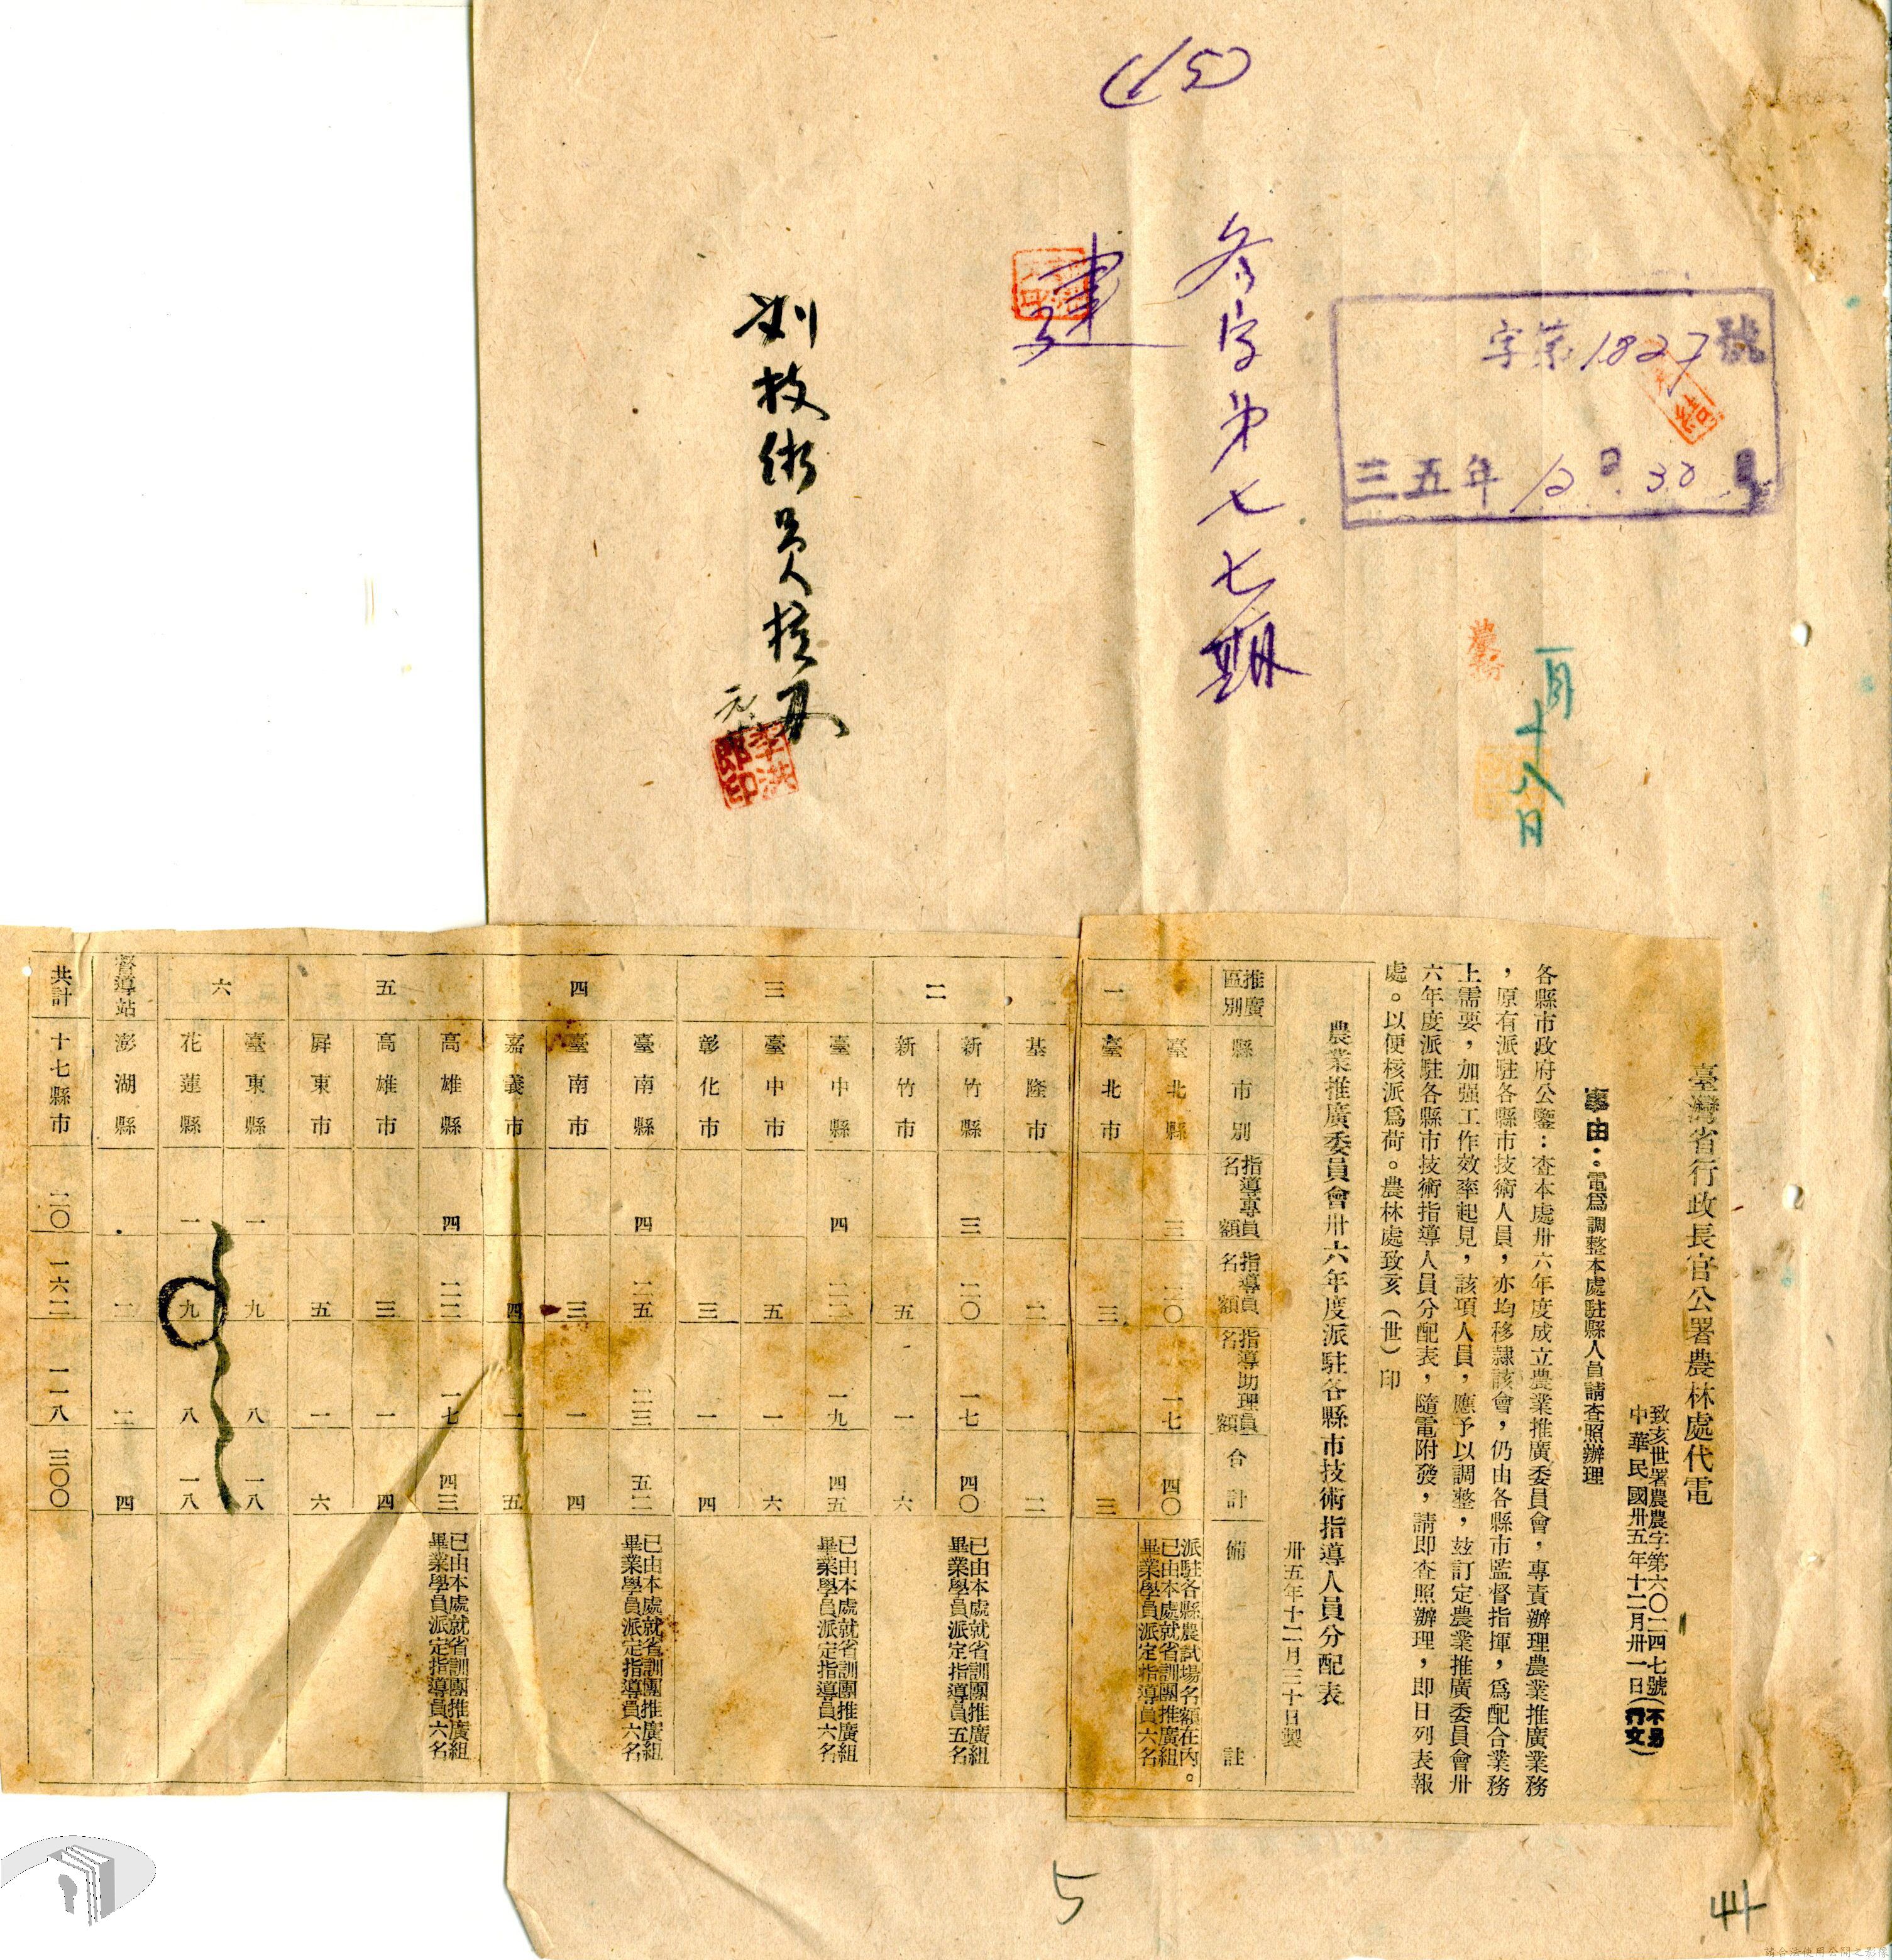 (15)
冬字第七七期
建
字第1827號
三五年12月30日
結
農務
一月十八日
劉技術員核办
元
李洪郎印
臺灣省行政長官公署農林處代電
致亥世署農農字第六〇二四七號(不另行文)
中華民國卅五年十二月卅一日
事由:電爲調整本處駐縣人員請查照辦理
各縣市政府公鑒:查本處卅六年度成立農業推廣委員會,專責辦理農業推廣業務
,原有派駐各縣市技術人員,亦均移隷該會,仍由各縣市監督指揮,爲配合業務
上需要,加强工作效率起見,該項人員,應予以調整,玆訂定農業推廣委員會卅
六年度派駐各縣市技術指導人員分配表,隨電附發,請即查照辦理,即日列表報
處。以便核派爲荷。農林處致亥(世)印
農業推廣委員會卅六年度派駐各縣市技術指導人員分配表
卅五年十二月三十日製
推廣區別 縣市別 指導專員名額 指導員名額 指導助理員名額 合計 備註
一 臺北縣 三 二〇 一七 四〇 派駐各縣農試場名額在內。已由本處就省訓團推廣組畢業學員派定指導員六名
臺北市 三 三
基隆市 二 二
二 新竹縣 三 二〇 一七 四〇 已由本處就省訓團推廣組畢業學員派定指導員五名
新竹市 五 一 六
三 臺中縣 四 二二 一九 四五 已由本處就省訓團推廣組畢業學員派定指導員六名
臺中市 五 一 六
彰化市 三 一 四
四 臺南縣 四 二五 二三 五二 已由本處就省訓團推廣組畢業學員派定指導員六名
臺南市 三 一 四
嘉義市 四 一 五
五 高雄縣 四 二二 一七 四三 已由本處就省訓團推廣組畢業學員派定指導員六名
高雄市 三 一 四
屛東市 五 一 六
六 臺東縣 一 九 八 一八
花蓮縣 一 九 八 一八
督導站 澎湖縣 二 二 四
共計 十七縣市 二〇 一六二 一一八 三〇〇
5
44
請合法使用公開之影像